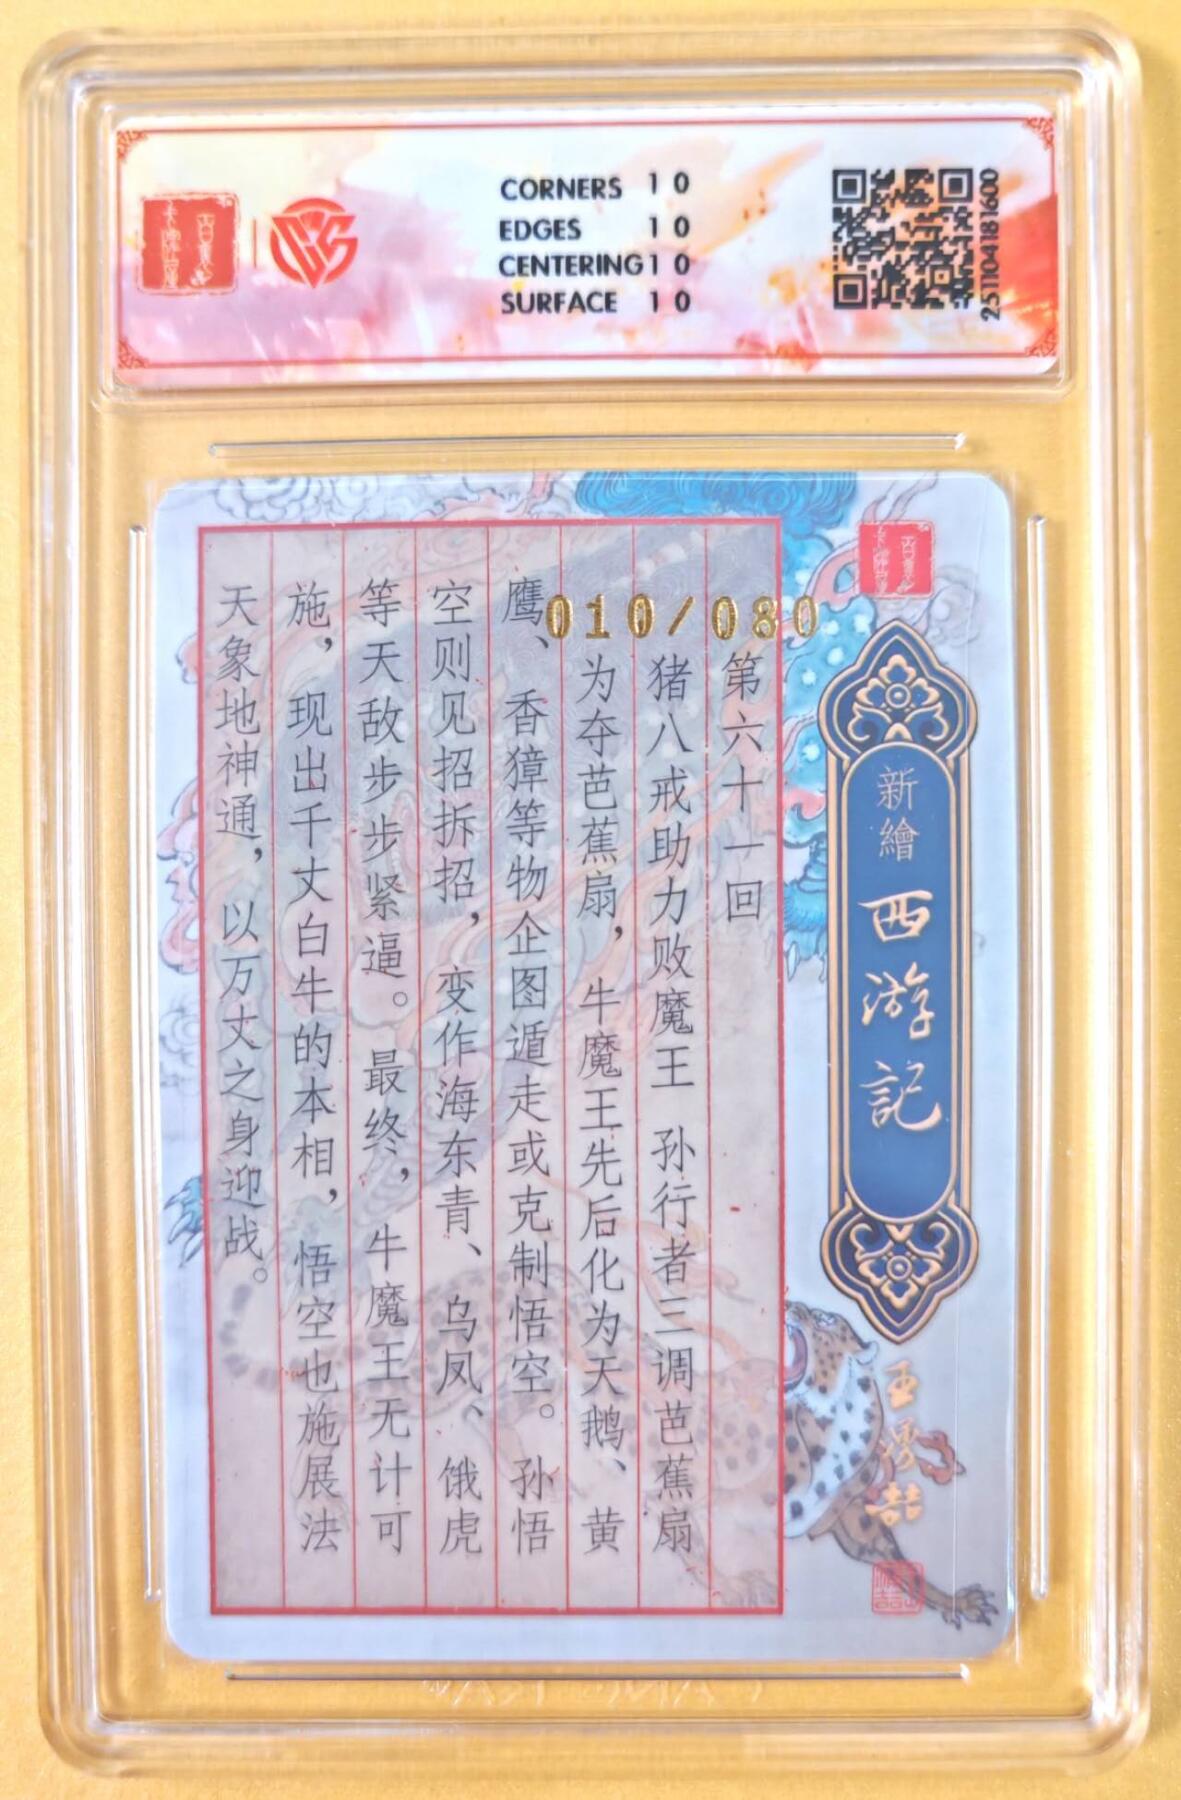 CORNERS 10
EDGES 10
CENTERING 10
SURFACE 10
251104181600
010/080
新繪
西游記
第六十一回
猪八戒助力败魔王 孙行者三调芭蕉扇
为夺芭蕉扇，牛魔王先后化为天鹅、黄
鹰、香獐等物企图遁走或克制悟空。孙悟
空则见招拆招，变作海东青、乌凤、饿虎
等天敌步步紧逼。最终，牛魔王无计可
施，现出千丈白牛的本相，悟空也施展法
天象地神通，以万丈之身迎战。